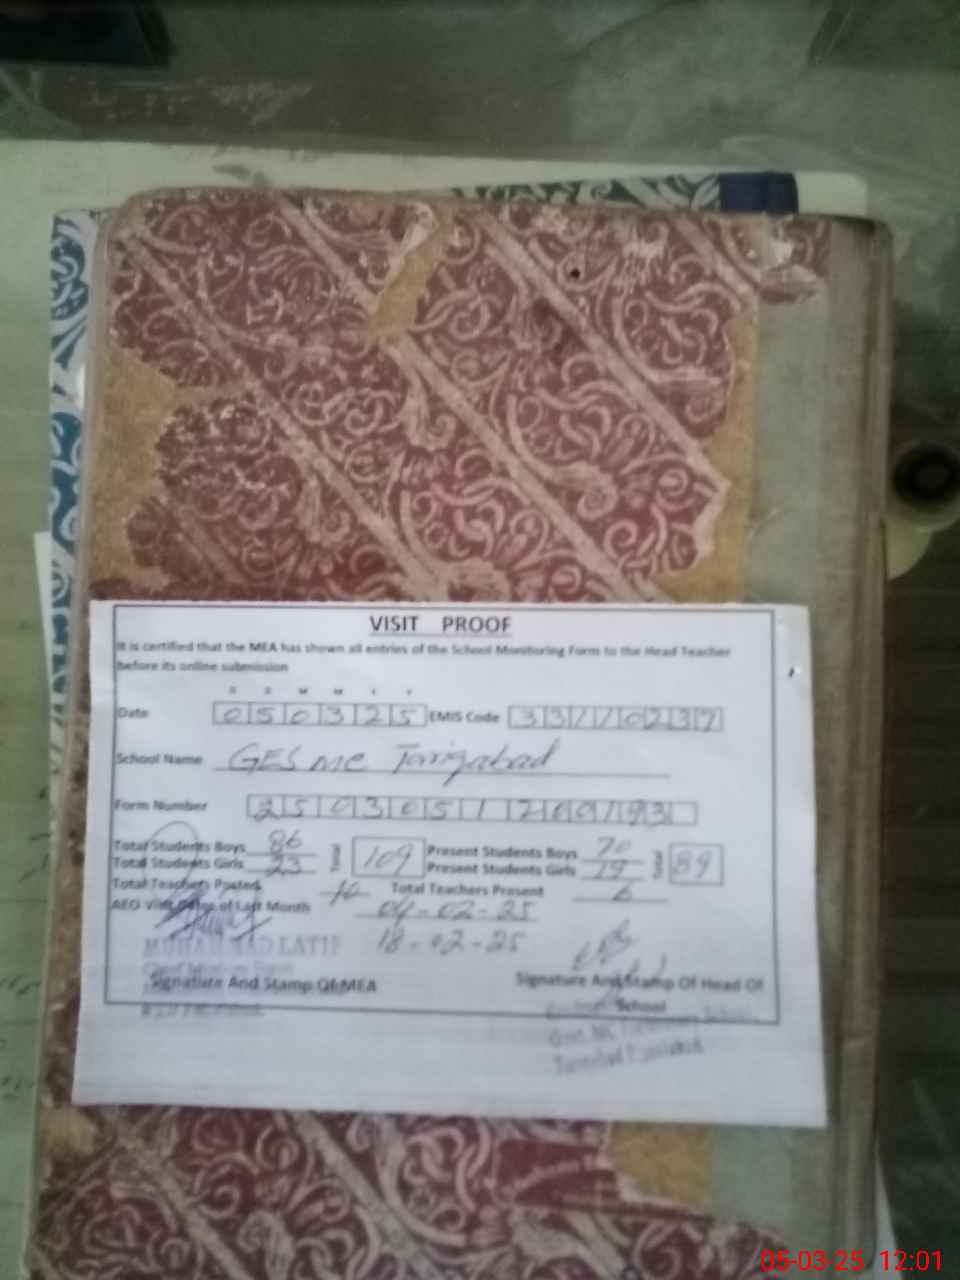 VISIT PROOF
It is certified that the MEA has shown all entries of the School Monitoring Form to the Head Teacher
before its online submission
D D M M Y Y
Date 050325 EMIS Code 33110237
School Name GES MC Tariqabad
Form Number
Total Students Boys 86 109 Present Students Boys 70 89
Total Students Girls 23 Present Students Girls 19
Total Teachers Posted 10 Total Teachers Present 6
AEO Visit Dates of Last Month 04-02-25
18-02-25
MUHAMMAD LATIF
Signature And Stamp Of MEA Signature And Stamp Of Head Of
School
05-03-25 12:01